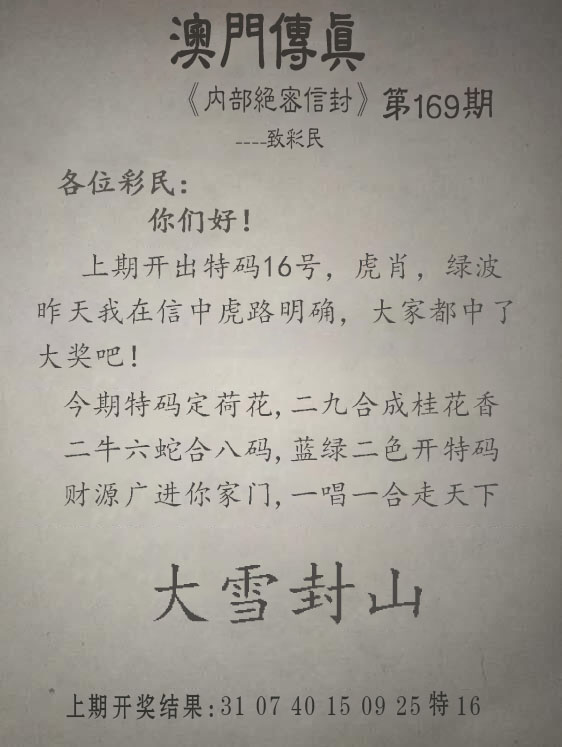 澳門傳真
《内部絕密信封》第169期
----致彩民
各位彩民：
你们好！
上期开出特码16号，虎肖，绿波
昨天我在信中虎路明确，大家都中了
大奖吧！
今期特码定荷花,二九合成桂花香
二牛六蛇合八码,蓝绿二色开特码
财源广进你家门,一唱一合走天下
大雪封山
上期开奖结果:31 07 40 15 09 25 特 16